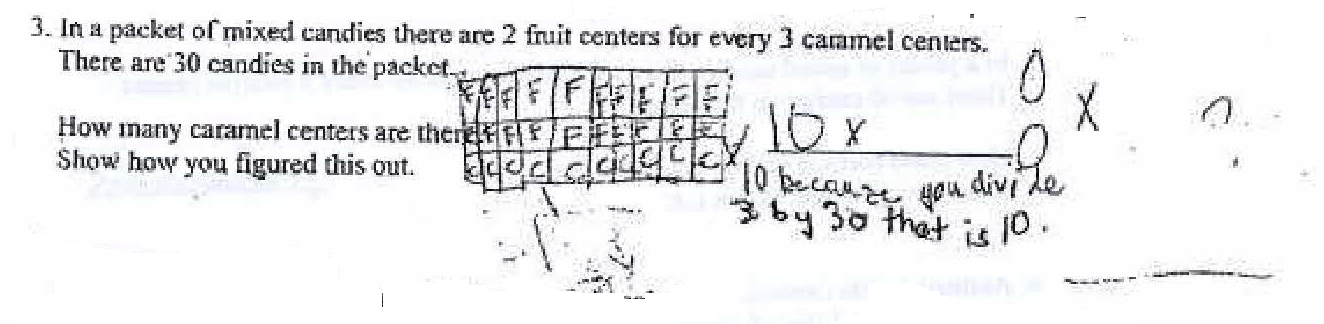 3. In a packet of mixed candies there are 2 fruit centers for every 3 caramel centers.
There are 30 candies in the packet.
F F F F F F F F F F
How many caramel centers are there F F F F F F F F F
10 x
0
0
x
?
Show how you figured this out.
C C C C C C C C C C
10 because you divide
3 by 30 that is 10.